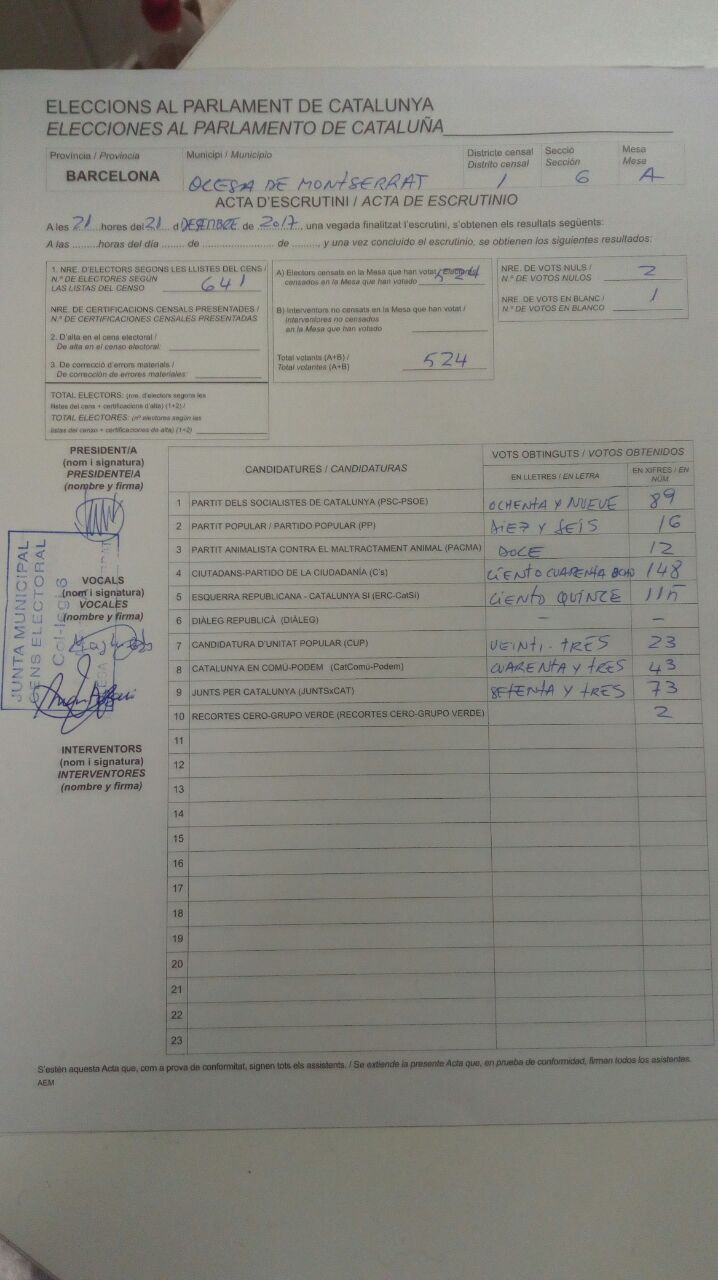 ELECCIONS AL PARLAMENT DE CATALUNYA
ELECCIONES AL PARLAMENTO DE CATALUÑA
Provincia / Provincia
BARCELONA
Municipi / Municipio
OLESA DE MONTSERRAT
Districte censal
Distrito censal
1
Secció
Sección
6
Mesa
Mesa
A
ACTA D'ESCRUTINI / ACTA DE ESCRUTINIO
A les 21 hores del 21 d DESEMBRE de 2017, una vegada finalitzat l'escrutini, s'obtenen els resultats següents:
A las ........ horas del día ....... de ..................... de ........, y una vez concluido el escrutinio, se obtienen los siguientes resultados:
1. NRE. D'ELECTORS SEGONS LES LLISTES DEL CENS /
N.º DE ELECTORES SEGÚN
LAS LISTAS DEL CENSO
641
NRE. DE CERTIFICACIONS CENSALS PRESENTADES /
N.º DE CERTIFICACIONES CENSALES PRESENTADAS
2. D'alta en el cens electoral /
De alta en el censo electoral:
3. De correcció d'errors materials /
De corrección de errores materiales:
TOTAL ELECTORS: (nre. d'electors segons les
llistes del cens + certificacions d'alta) (1+2) /
TOTAL ELECTORES: (nº electores según las
listas del censo + certificaciones de alta) (1+2)
A) Electors censats en la Mesa que han votat / Electores
censados en la Mesa que han votado
524
B) Interventors no censats en la Mesa que han votat /
Interventores no censados
en la Mesa que han votado
Total votants (A+B) /
Total votantes (A+B)
524
NRE. DE VOTS NULS /
N.º DE VOTOS NULOS
2
NRE. DE VOTS EN BLANC /
N.º DE VOTOS EN BLANCO
1
PRESIDENT/A
(nom i signatura)
PRESIDENTE/A
(nombre y firma)
JUNTA MUNICIPAL
CENS ELECTORAL
Col·legis
VOCALS
(nom i signatura)
VOCALES
(nombre y firma)
INTERVENTORS
(nom i signatura)
INTERVENTORES
(nombre y firma)
CANDIDATURES / CANDIDATURAS
VOTS OBTINGUTS / VOTOS OBTENIDOS
EN LLETRES / EN LETRA
EN XIFRES / EN NÚM
1 PARTIT DELS SOCIALISTES DE CATALUNYA (PSC-PSOE) OCHENTA Y NUEVE 89
2 PARTIT POPULAR / PARTIDO POPULAR (PP) DIEZ Y SEIS 16
3 PARTIT ANIMALISTA CONTRA EL MALTRACTAMENT ANIMAL (PACMA) DOCE 12
4 CIUTADANS-PARTIDO DE LA CIUDADANÍA (C's) CIENTO CUARENTA OCHO 148
5 ESQUERRA REPUBLICANA - CATALUNYA SI (ERC-CatSí) CIENTO QUINCE 115
6 DIÀLEG REPUBLICÀ (DIÀLEG) — —
7 CANDIDATURA D'UNITAT POPULAR (CUP) VEINTI-TRES 23
8 CATALUNYA EN COMÚ-PODEM (CatComú-Podem) CUARENTA Y TRES 43
9 JUNTS PER CATALUNYA (JUNTSxCAT) SETENTA Y TRES 73
10 RECORTES CERO-GRUPO VERDE (RECORTES CERO-GRUPO VERDE) 2
11
12
13
14
15
16
17
18
19
20
21
22
23
S'estén aquesta Acta que, com a prova de conformitat, signen tots els assistents. / Se extiende la presente Acta que, en prueba de conformidad, firman todos los asistentes.
AEM